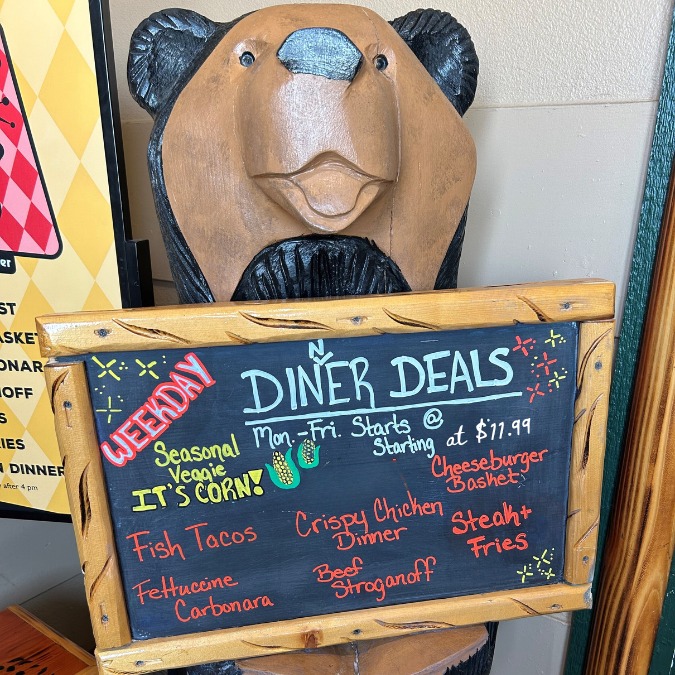 WEEKDAY
DINER DEALS
N
Mon.-Fri. Starts @
Starting at $11.99
Seasonal
Veggie
IT'S CORN!
Cheeseburger
Basket
Fish Tacos
Crispy Chicken
Dinner
Steak+
Fries
Fettuccine
Carbonara
Beef
Stroganoff
er
ST
ASKET
ONAR
NOFF
S
IES
N DINNER
after 4 pm